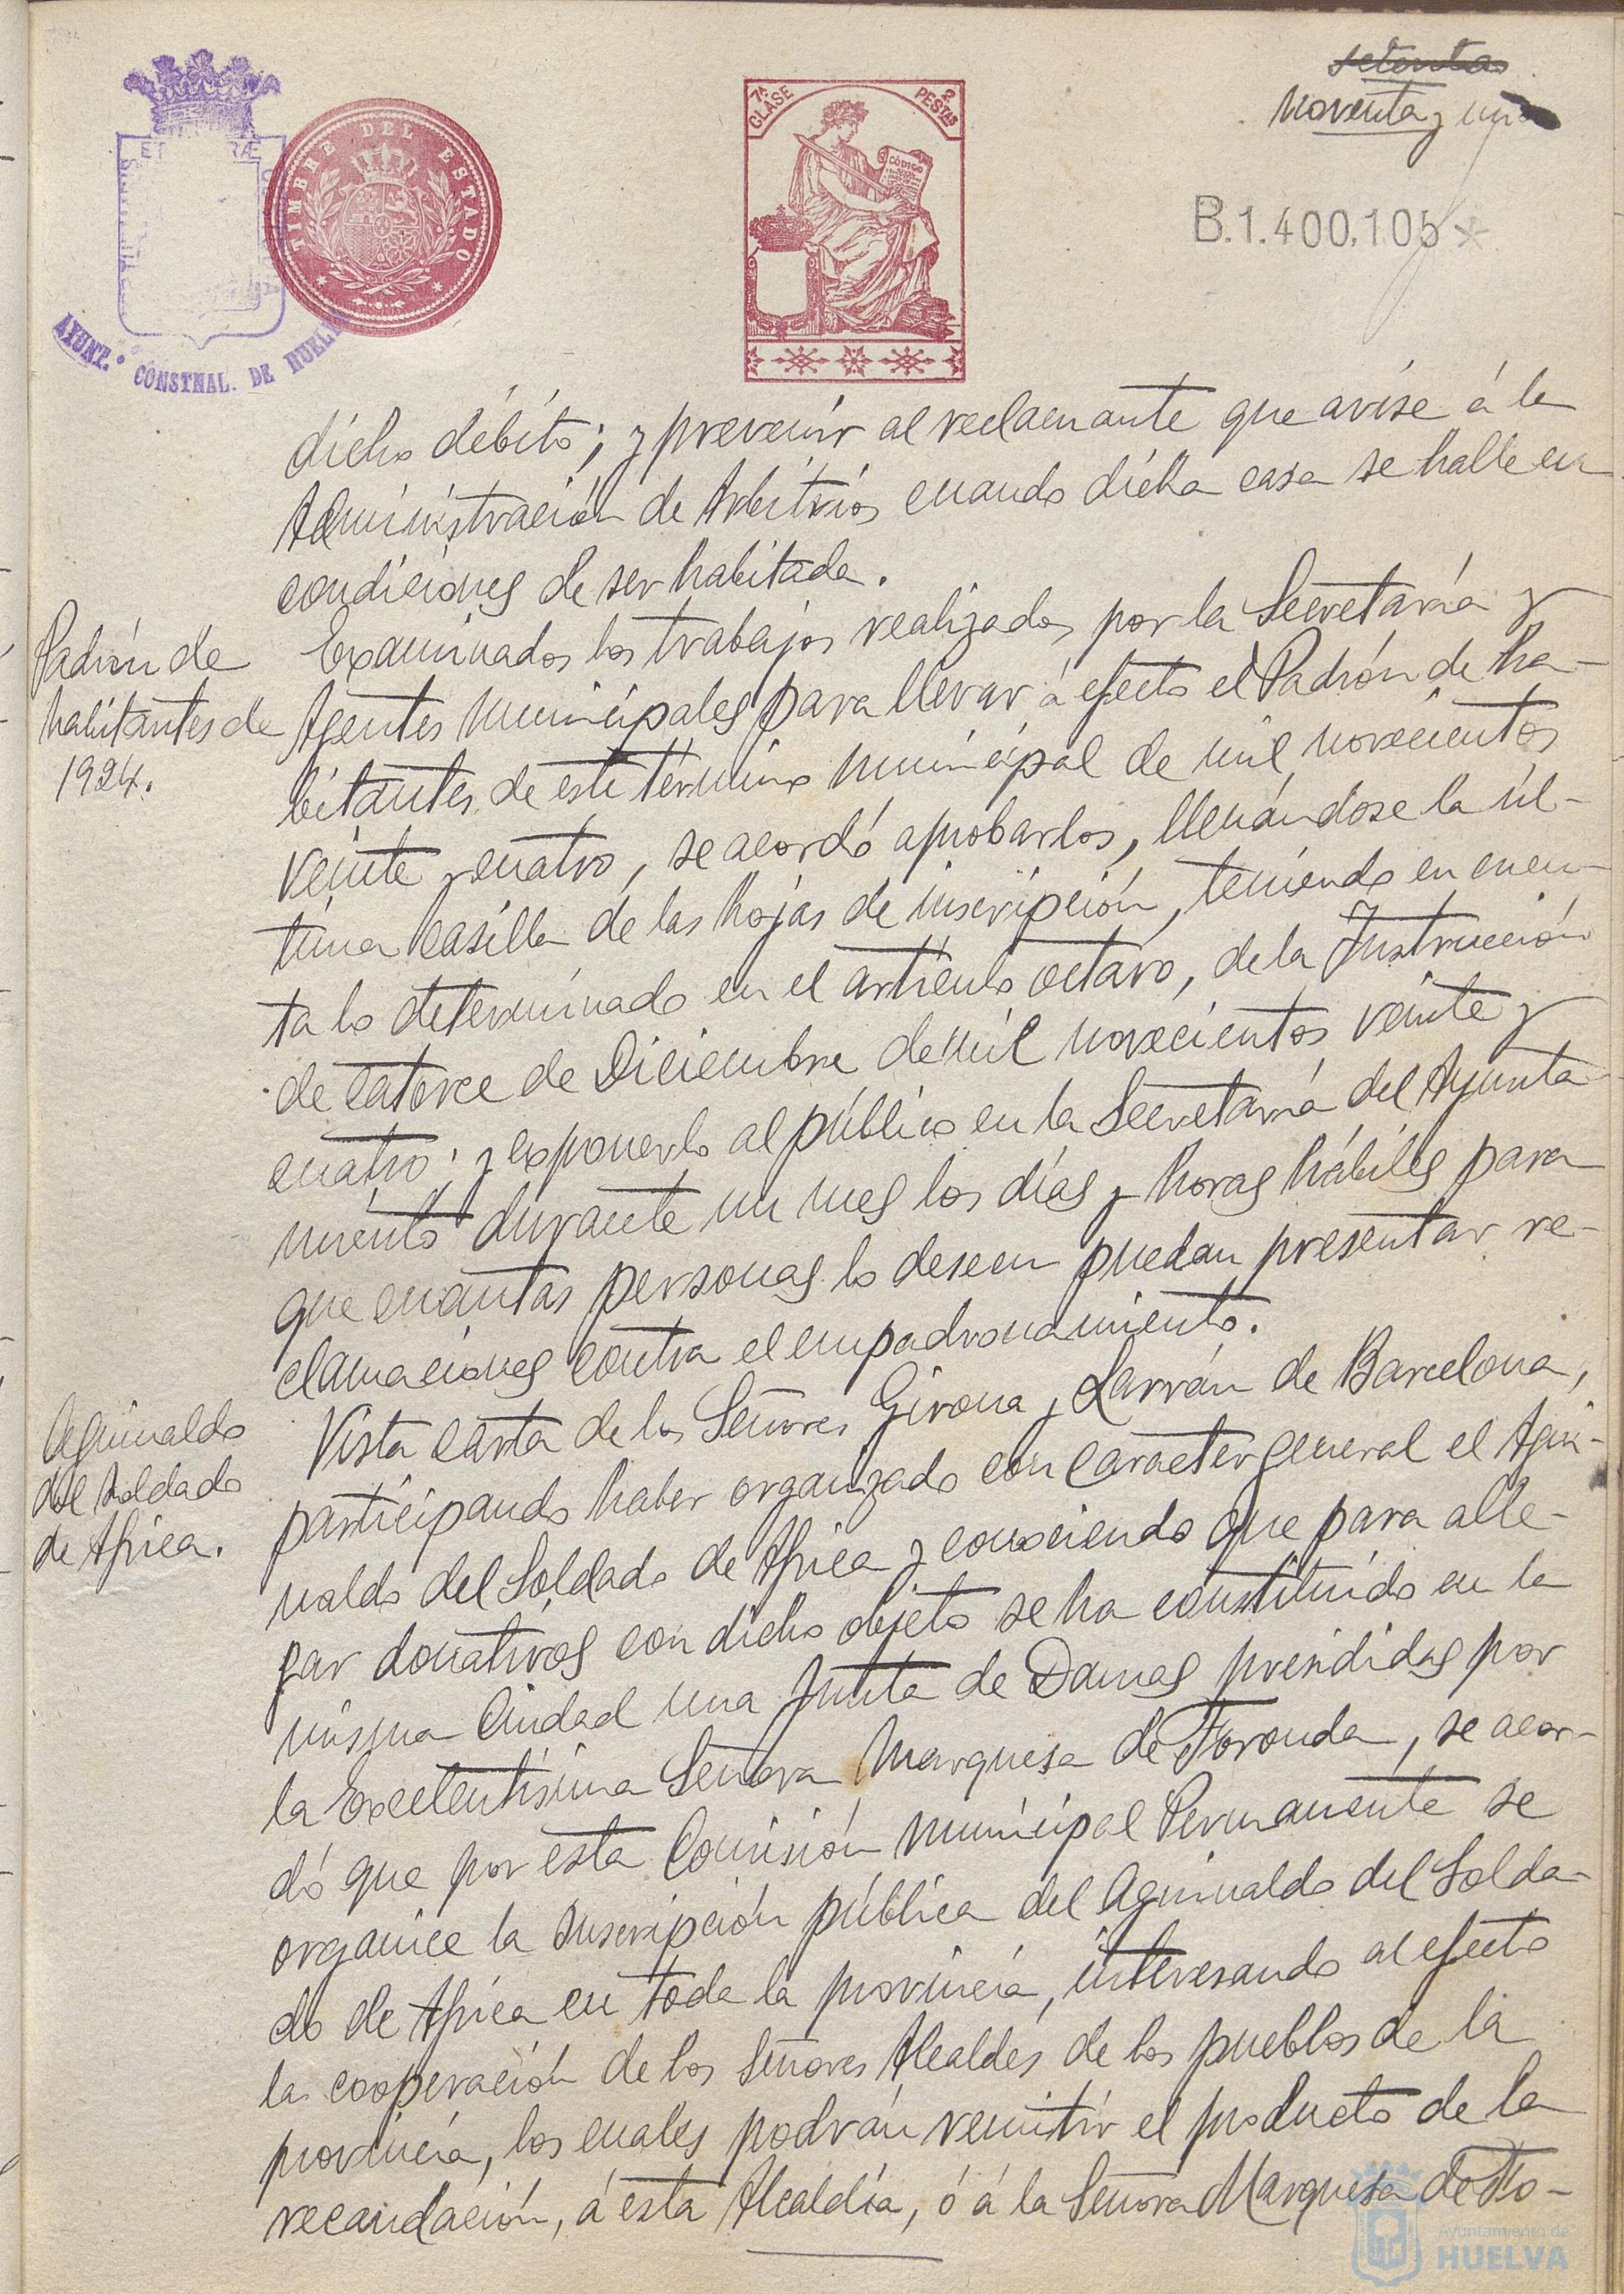 setenta
noventa y uno
7ª CLASE
2 PESTAS
CÓDIGO
TIMBRE DEL ESTADO
B.1.400.105*
AYUNT.º CONSTNAL. DE HUELVA
dicho débito; y prevenir al reclamante que avise á la
Administración de Arbitrios cuando dicha casa se halle en
condiciones de ser habitada.
Padrón de
habitantes de
1924.
Examinados los trabajos realizados por la Secretaría y
Agentes municipales para llevar á efecto el Padrón de ha-
bitantes de este término municipal de mil novecientos
veinte y cuatro, se acordó aprobarlos, llenándose la úl-
tima casilla de las hojas de inscripción, teniendo en cuen-
ta lo determinado en el artículo octavo, de la Instrucción
de catorce de Diciembre de mil novecientos veinte y
cuatro; y exponerlo al público en la Secretaría del Ayunta-
miento durante un mes los días y horas hábiles para
que cuantas personas lo deseen puedan presentar re-
clamaciones contra el empadronamiento.
Aguinaldo
del Soldado
de Africa.
Vista carta de los Señores Girona y Larrán de Barcelona,
participando haber organizado con caracter general el Agui-
naldo del Soldado de Africa y conociendo que para alle-
gar donativos con dicho objeto se ha constituído en la
misma Ciudad una Junta de Damas presididas por
la Excelentísima Señora Marquesa de Foronda, se acor-
dó que por esta Comisión Municipal Permanente se
organice la suscripción pública del Aguinaldo del Solda-
do de Africa en toda la provincia, interesando al efecto
la cooperación de los Señores Alcaldes de los pueblos de la
provincia, los cuales podrán remitir el producto de la
recaudación, á esta Alcaldía, ó á la Señora Marquesa de Fo-
Ayuntamiento de
HUELVA